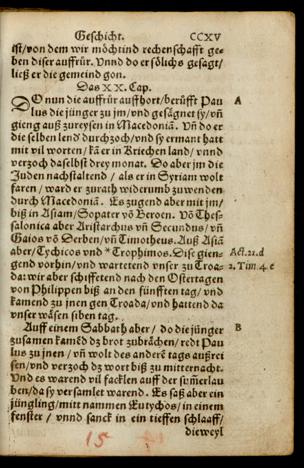 Geschicht. CCXV
ist/von dem wir möchtind rechenschafft ge-
ben diser auffrůr. Vnnd do er sölichs gesagt/
ließ er die gemeind gon.
Das XX. Cap.
DO nun die auffrůr auffhort/berůfft Pau A
lus die jünger zu jm/vnd gesägnet sy/vñ
gieng auß zureysen in Macedoniā. Vñ do er
die selben lend durchzoch/vnd sy ermant hatt
mit vil worten/ kā er in Kriechen land/vnnd
verzoch daselbst drey monat. So aber jm die
Juden nachstaltend / als er in Syriam wolt
faren / ward er zurath widerumb zuwenden
durch Macedoniā. Es zugend aber mit jm/
biß in Asiam/Sopater vō Beroen. Vō Thes-
salonica aber Aristarchus vñ Secundus/ vñ
Gaios vō Derben/vñ Timotheus. Auß Asiā
aber/Tychicos vnd *Trophimos. Dise gien- Act.21.d
gend vorhin/vnd warttetend vnser zu Troa- 2.Tim.4.c
da: wir aber schiffetend nach den Ostertagen
von Philippen biß an den fünfften tag/ vnd
kamend zu jnen gen Troada/vnd hattend da
vnser wäsen siben tag.
Auff einem Sabbath aber / do die jünger B
zusamen kamēd dz brot zubrächen/ redt Pau
lus zu jnen / vñ wolt des anderē tags außrei
sen/vnd verzoch dz wort biß zu mitternacht.
Vnd es warend vil facklen auff der sum̄erlau
ben/da sy versamlet warend. Es saß aber ein
jüngling/mitt nammen Eutychos/in einem
fenster / vnnd sanck in ein tieffen schlaaff/
dieweyl
15